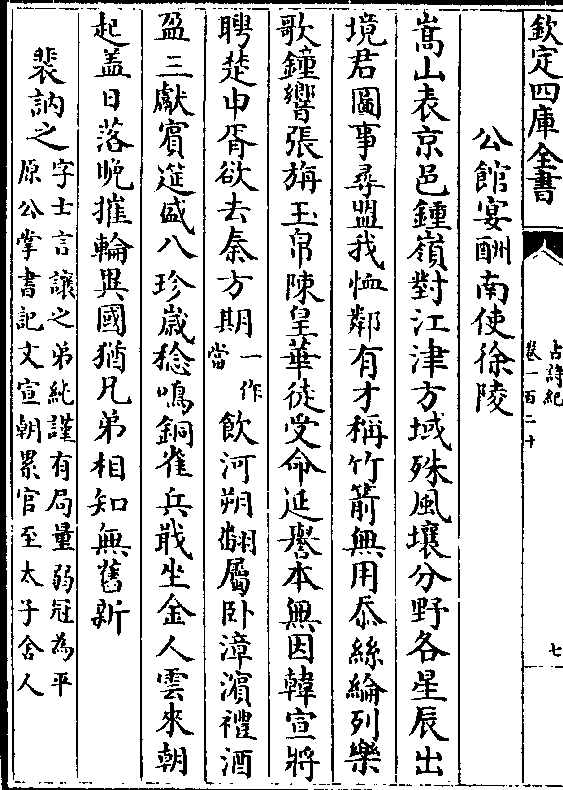 欽定四庫全書
古詩紀
卷一百二十
七
公館宴酬南使徐陵
嵩山表京邑鍾嶺對江津方域殊風壤分野各星辰出
境君圖事尋盟我恤鄰有才稱竹箭無用忝絲綸列樂
歌鐘響張旃玉帛陳皇華徒受命延譽本無因韓宣將
聘楚申胥欲去秦方期一作當飲河朔翻屬卧漳濱禮酒
盈三獻賓筵盛八珍歲稔鳴銅雀兵戢坐金人雲來朝
起盖日落晚摧輪異國猶兄弟相知無舊新
裴訥之字士言讓之弟純謹有局量弱冠為平
原公掌書記文宣朝累官至太子舍人